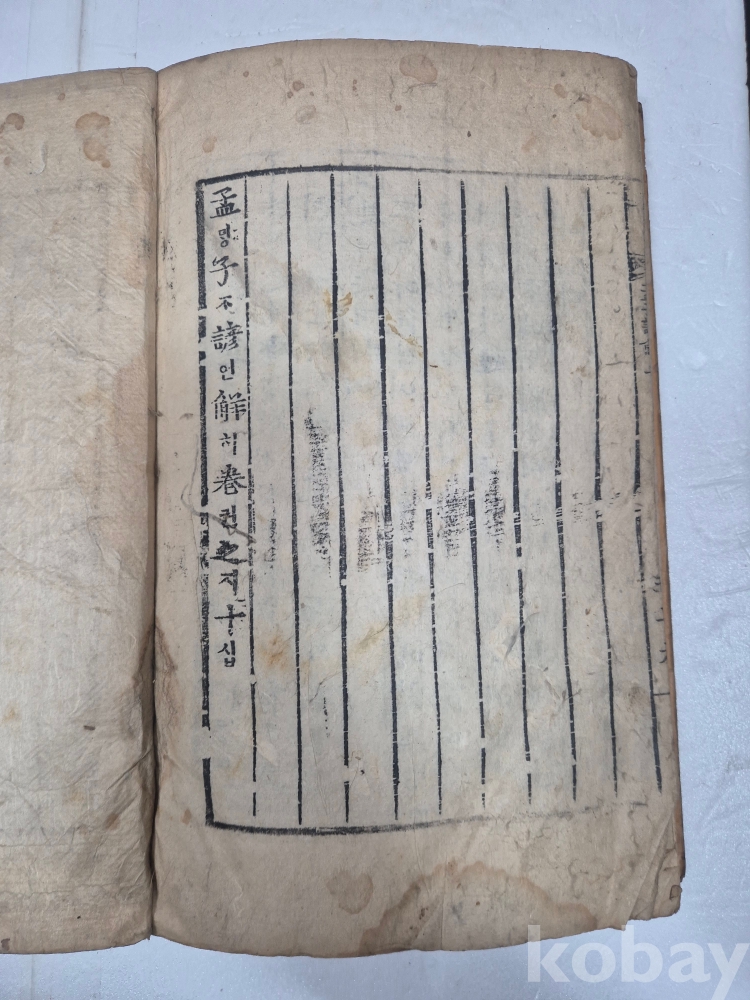 孟ᄆᆡᆼ子ᄌᆞ諺언解ᄒᆡ卷권之지十십
kobay